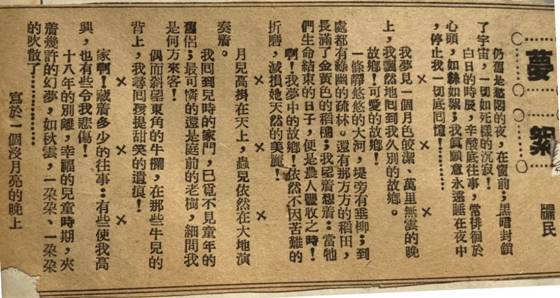 夢絮
民
仍舊是悠悶的夜,在窗前;黑暗封鎖
了宇宙,一切如死樣的沉寂!
白日的時辰,辛酸底往事,常徘徊於
心頭,如絲如絮;我眞願意永遠睡在夜中
,停止我一切底回憶!……
我夢見一個月色皎潔、萬里無雲的晚
上,我飄然地回到我久別的故鄉。
故鄉!可愛的故鄉!
一條靜悠悠的大河,堤旁有垂柳;到
處都有綠幽的疏林。還有那方方的稻田,
長滿了金黃色的稻穗;我着想着:當牠
們生命結束的日子,便是農人豐收之時!
啊!我夢中的故鄉!依然不因苦難的
折磨,減損她天然的美麗!
月兒高掛在天上,蟲兒依然在大地演
奏着。
我回到兒時的家門,已覓不見童年的
舊侶;最可憐的還是庭前的老樹,細問我
是何方來客!
偶而斜望東角的牛欄,在那些牛兒的
背上,我尋回我提甜笑的遺痕!
家啊!藏着多少的往事:有些使我高
興,也有些令我悲傷!
十八年的別離,幸福的兒童時期,夾
着幾許的幻夢,如秋雲,一朶朶、一朶朶
的吹散了……
寫於一個沒月亮的晚上